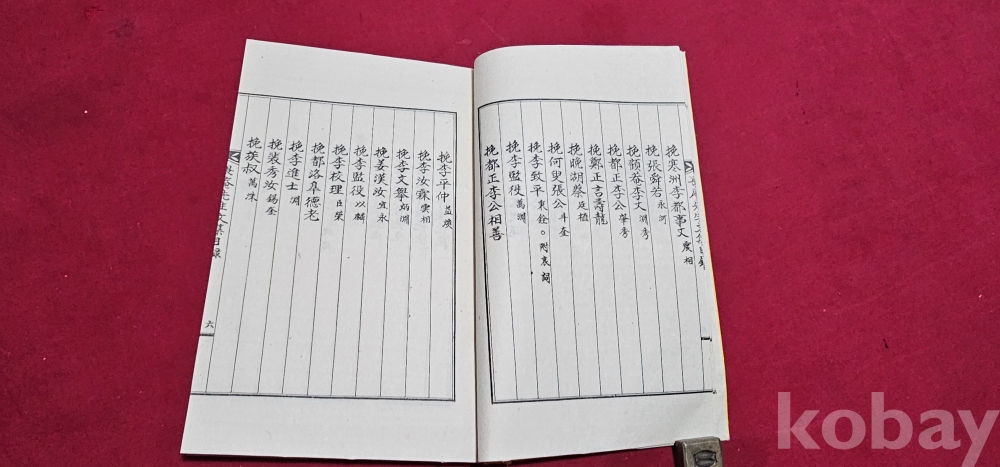 挽寒洲李都事丈慶相
挽張舜若永河
挽顧菴李丈渊秀
挽都正李公肇秀
挽鄭正言壽龍
挽晩湖蔡廷植
挽何叟張公斗奎
挽李致平銓○附哀詞
挽李監役萬淵
挽都正李公相善
挽李平仲益
挽李汝霖雲相
挽李文擧炳淵
挽姜漢汝宜永
挽李監役以麟
挽李校理臣榮
挽都洛皐德老
挽李進士淵
挽裴秀汝錫奎
挽族叔萬洙
先生文集目錄
六
kobay